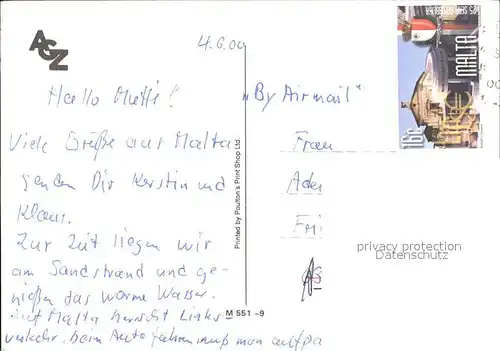 AGZ
4.6.00
Hallo Mutti!
Viele Grüße aus Malta
senden Dir Kerstin und
Klaus.
Zur Zeit liegen wir
am Sandstrand und ge-
nießen das warme Wasser.
Auf Malta herrscht Links-
verkehr, beim Autofahren muß man aufpa
Printed by Poulton's Print Shop Ltd
M 551 -9
"By Airmail"
Frau
MALTA
16c
privacy protection
Datenschutz